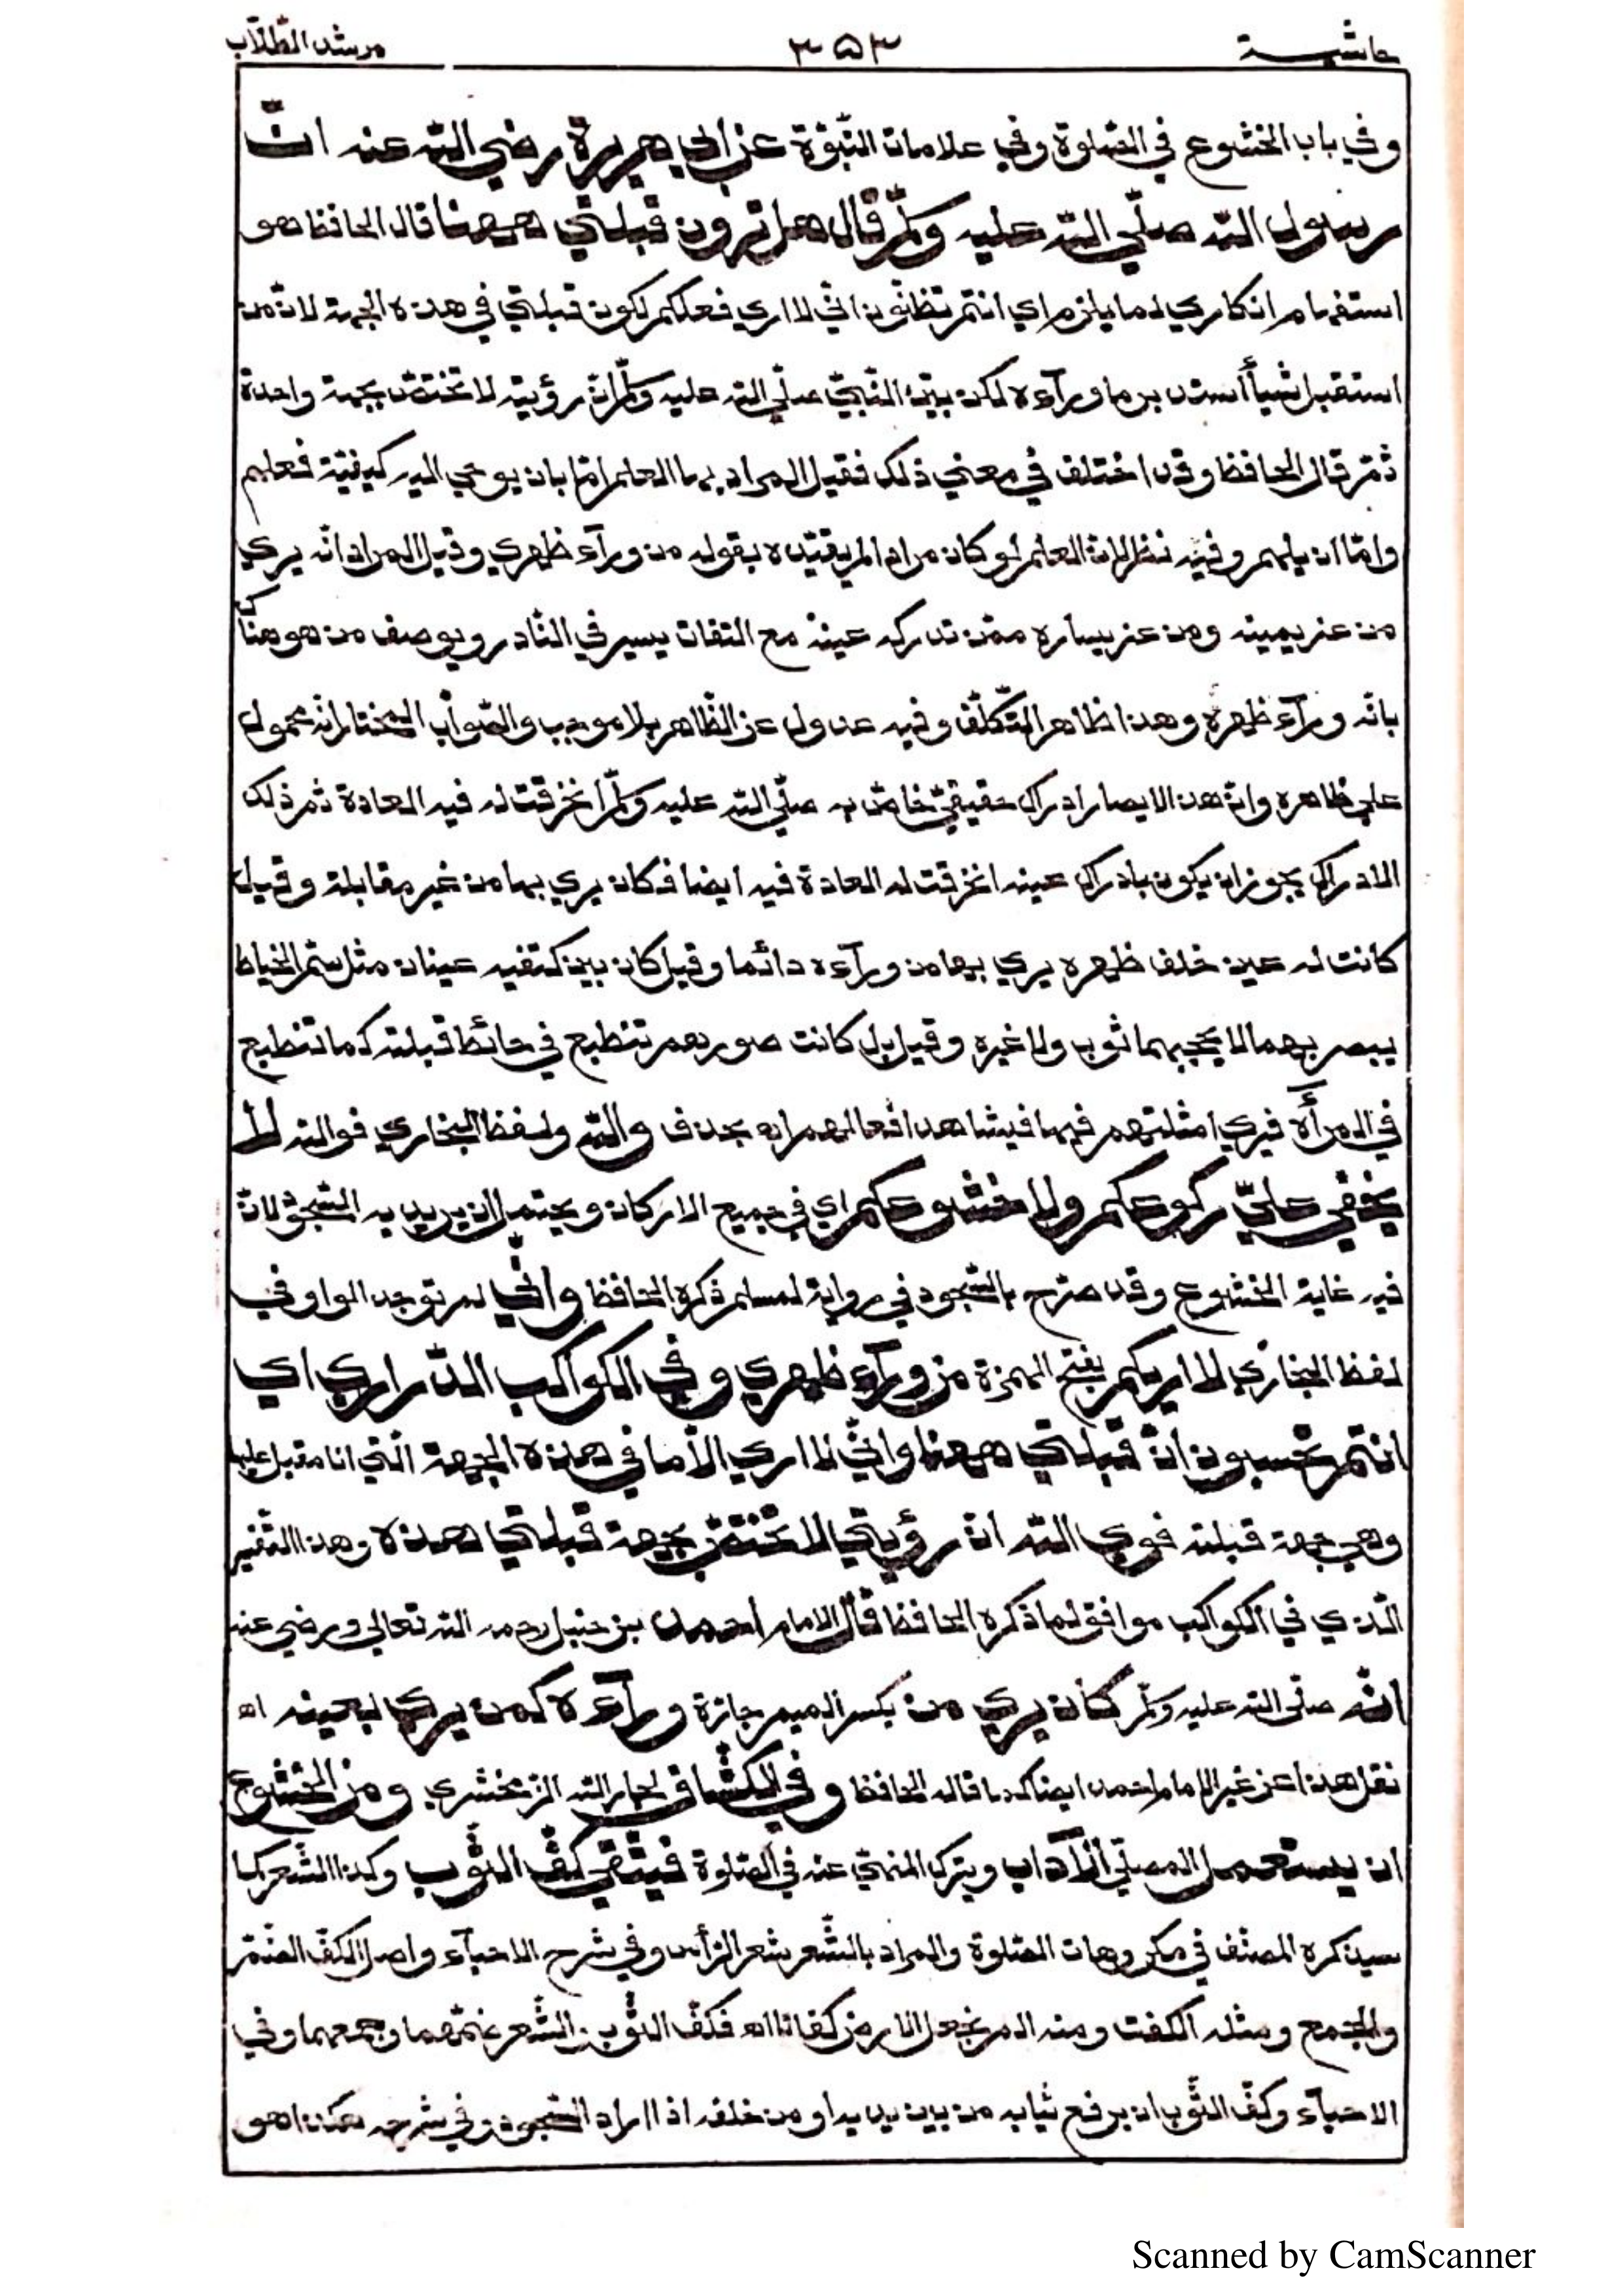 حاشية ٣٥٣ مرشد الطّلّاب
وفي باب الخشوع في الصّلوة وفي علامات النّبوّة عن ابي هريرة رضي اللّه عنه انّ
رسول اللّه صلّي اللّه عليه وسلّم قال هل ترون قبلتي ههنا قال الحافظ هو
استفهام انكاري لما يلزم اي انتم تظنّون انّي لا اري فعلكم لكون قبلتي في هذه الجهة لانّ من
استقبل شيأ أستدبر ما ورآءه لكن بيّن النّبيّ صلّي اللّه عليه وسلّم انّ رؤيته لا تختصّ بجهة واحدة
ثمّ قال الحافظ وقد اختلف في معني ذلك فقيل المراد بها العلم امّا بان يوحي اليه كيفيّة فعلهم
وامّا ان يلهم وفيه نظر لانّ العلم لو كان مرادا لم يقيّده بقوله من ورآء ظهري وقيل المراد انّه يري
من عن يمينه ومن عن يساره ممّن تدركه عينه مع التفات يسير في النّادر ويوصف من هو هناك
بانّه ورآء ظهره وهذا ظاهر التّكلّف وفيه عدول عن الظّاهر بلا موجب والصّواب المختار انّه محمول
علي ظاهره وانّ هذا الابصار ادراك حقيقيّ خاصّ به صلّي اللّه عليه وسلّم انخرقت له فيه العادة ثم ذلك
الادراك يجوز ان يكون بادراك عينه انخرقت له العادة فيه ايضا فكان يري بها من غير مقابلة وقيل
كانت له عين خلف ظهره يري بها من ورآءه دائما وقيل كان بين كتفيه عينان مثل سمّ الخياط
يبصر بهما لا يحجبهما ثوب ولا غيره وقيل بل كانت صورهم تنطبع في حائط قبلته كما تنطبع
في المرأة فيري امثلتهم فيها فيشاهد افعالهم اه بحذف واللّه ولفظ البخاري فواللّه لا
يخفي عليّ ركوعكم ولا خشوعكم اي في جميع الاركان ويحتمل ان يريد به السّجود لانّ
فيه غاية الخشوع وقد صرّح بالسّجود في رواية لمسلم ذكره الحافظ وانّي لم توجد الواو في
لفظ البخاري لا اريكم بفتح الهمزة من ورآء ظهري وفي الكواكب الدّراري اي
انتم تحسبون انّ قبلتي ههنا وانّي لا اري الّا ما في هذه الجهة الّتي انا مقبل عليها
وهي جهة قبلته فوي اللّه انّ رؤيتي لا تختصّ بجهة قبلتي هذه وهذا التّفسير
الّذي في الكواكب موافق لما ذكره الحافظ قال الامام احمد بن حنبل رحمه اللّه تعالي ورضي عنه
انّه صلّي اللّه عليه وسلّم كان يري من بكسر الميم جازة ورآءه كمن يري بعينه اه
نقل هذا عن غير الامام احمد ايضا كما قاله الحافظ وفي الكشّاف لجار اللّه الزّمخشري ومن الخشوع
ان يستعمل المصلّي الآداب ويترك المنهيّ عنه في الصّلوة فيتّقي كفّ الثّوب وكذا الشّعر كما
سيذكره المصنّف في مكروهات الصّلوة والمراد بالشّعر شعر الرّأس وفي شرح الاحيآء واصل الكفّ الضّمّ
والجمع ومثله الكفت ومنه الم نجعل الارض كفاتا اه فكفّ الثّوب والشّعر ضمّهما وجمعهما وفي
الاحيآء وكفّ الثّوب ان يرفع ثيابه من بين يديه او من خلفه اذا اراد السّجود وفي شرحه هكذا هو
Scanned by CamScanner